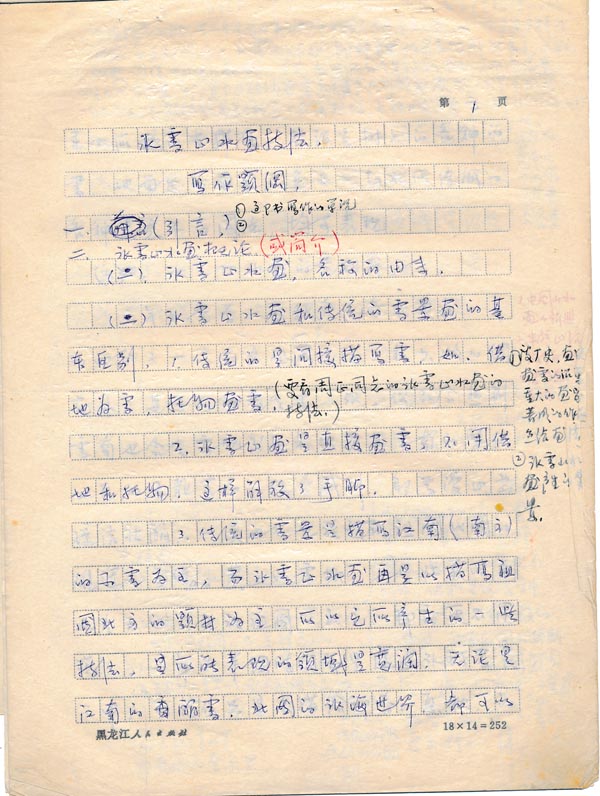 第 1 页
冰雪山水画技法.
写作题纲,
一.(引言,) ①这本书写作的
②
二 冰雪山水画概论(或简介)
(一)冰雪山水画,名称的由来.
(二)冰雪山水画和传统的雪景画的基
本区别, 1. 传统的是间接描写雪. 如, 借
地为雪, 托物画雪, (要有周正同志的冰雪山水画的
技法.)
2. 冰雪山画是直接画雪, 不用借
地和托物. 这样解放了手脚.
3. 传统的雪景是描写江南(南方)
的雪为主, 而冰雪山水画再是以描写祖
国北方的题材为主 所以它所产生的一些
技法, 且所能表现的领域是宽阔. 无论是
江南的雪, 北国的冰海世界 都可以
② 冰雪山水
画产生的
景.
黑龙江人民出版社
18×14=252